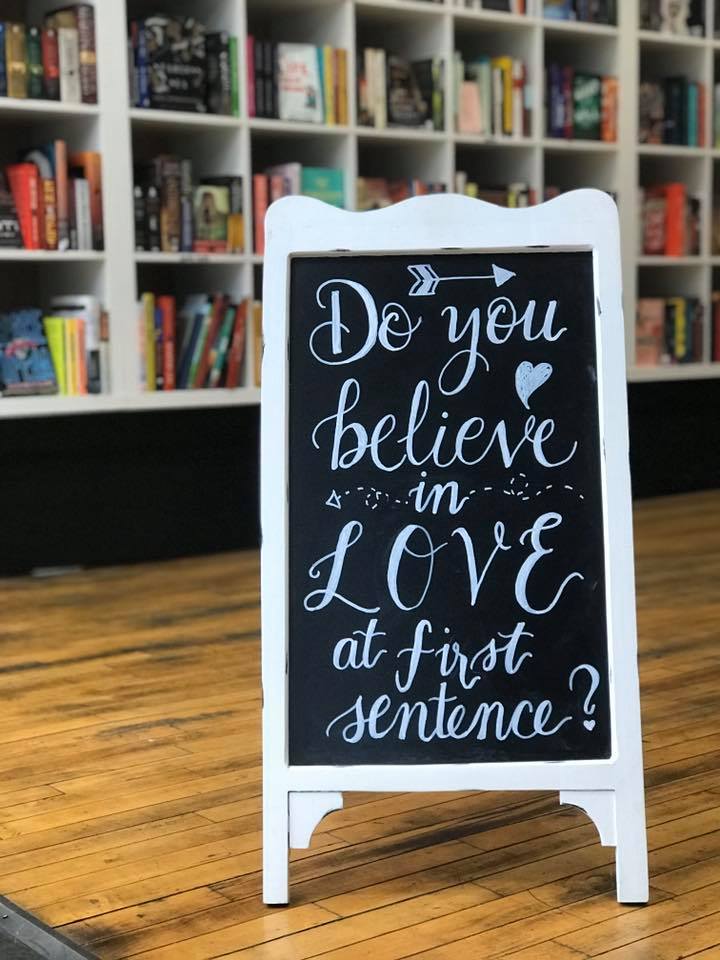 Do you
believe
in
LOVE
at first
sentence?